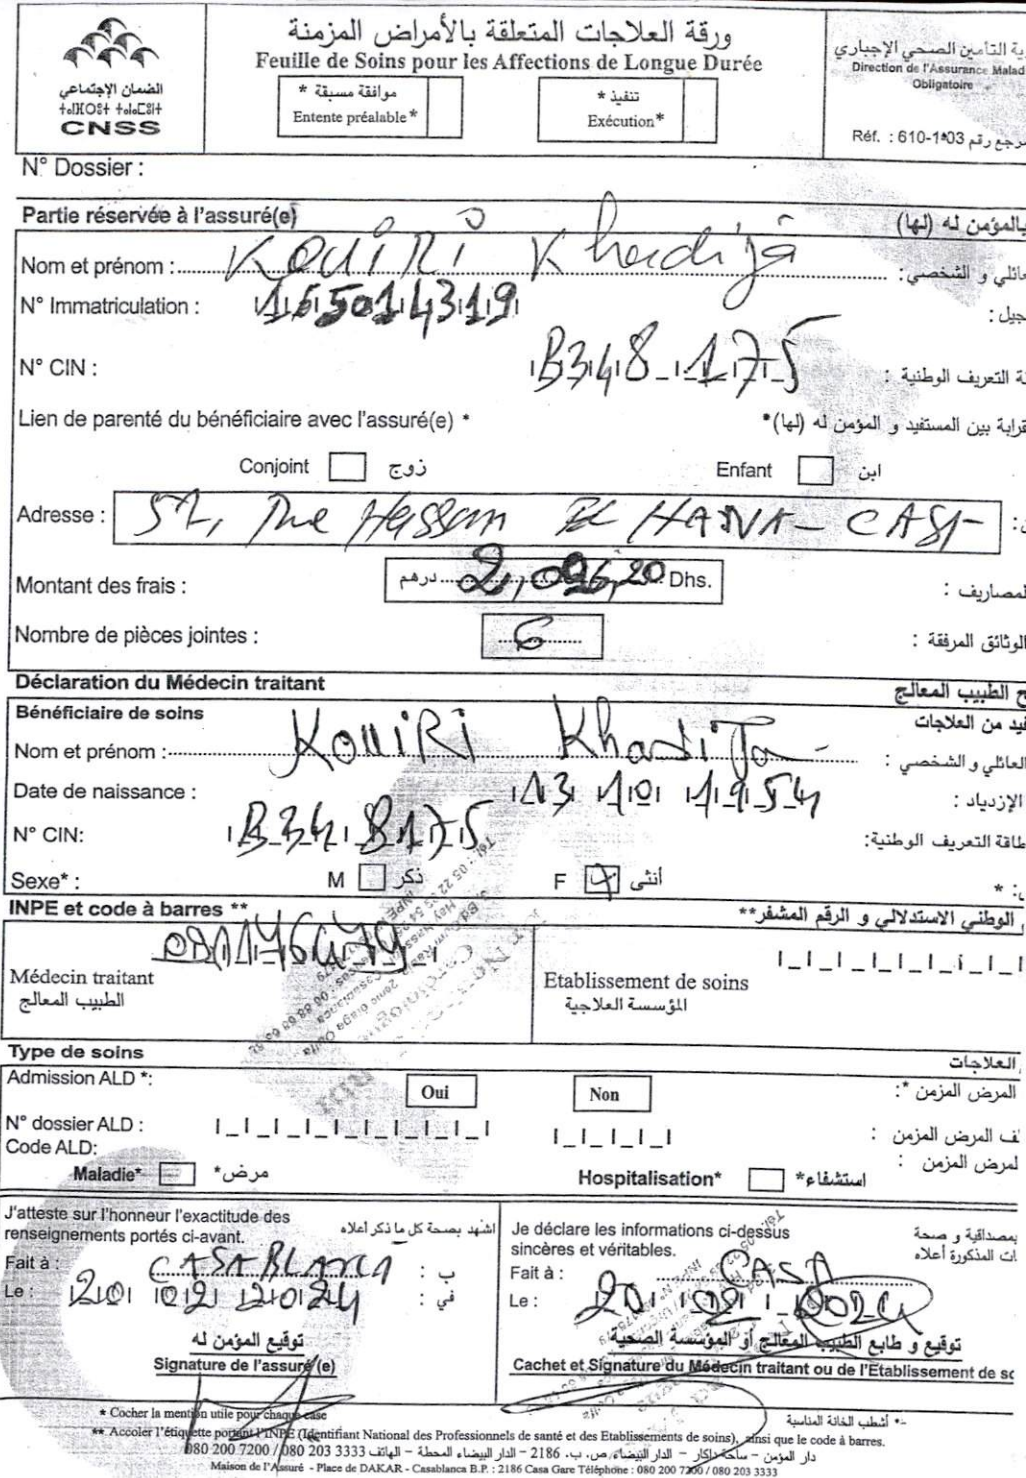 ورقة العلاجات المتعلقة بالأمراض المزمنة
Feuille de Soins pour les Affections de Longue Durée
الضمان الإجتماعي
CNSS
موافقة مسبقة *
Entente préalable *
تنفيذ *
Exécution*
ية التأمين الصحي الإجباري
Direction de l'Assurance Malad
Obligatoire
Réf. : 610-1-03 مرجع رقم
N° Dossier :
Partie réservée à l'assuré(e) بالمؤمن له (لها)
Nom et prénom : Kouiri Khadija عائلي و الشخصي :
N° Immatriculation : 155014319 جيل :
N° CIN : B348175 ة التعريف الوطنية :
Lien de parenté du bénéficiaire avec l'assuré(e) * قرابة بين المستفيد و المؤمن له (لها)*
Conjoint زوج Enfant ابن
Adresse : 52, Rue Hassan EL HANA - CASA
Montant des frais : درهم 2,096,20 Dhs. لمصاريف :
Nombre de pièces jointes : 6 الوثائق المرفقة :
Déclaration du Médecin traitant ح الطبيب المعالج
Bénéficiaire de soins فيد من العلاجات
Nom et prénom : Kouiri Khadija العائلي و الشخصي :
Date de naissance : 13 10 1954 الإزدياد :
N° CIN: B348175 طاقة التعريف الوطنية:
Sexe* : M ذكر F أنثى
INPE et code à barres ** الوطني الاستدلالي و الرقم المشفر**
Médecin traitant
الطبيب المعالج
Etablissement de soins
المؤسسة العلاجية
Type de soins العلاجات
Admission ALD *: Oui Non المرض المزمن *:
N° dossier ALD : ف المرض المزمن :
Code ALD: لمرض المزمن :
Maladie* مرض* Hospitalisation* استشفاء*
J'atteste sur l'honneur l'exactitude des
renseignements portés ci-avant.
اشهد بصحة كل ما ذكر أعلاه
Fait à : CASABLANCA ب :
Le : 20 02 2024 في :
توقيع المؤمن له
Signature de l'assuré (e)
Je déclare les informations ci-dessus
sincères et véritables.
بمصداقية و صحة
ات المذكورة أعلاه
Fait à : CASA
Le : 20 02 2024
توقيع و طابع الطبيب المعالج أو المؤسسة الصحية
Cachet et Signature du Médecin traitant ou de l'Etablissement de so
* Cocher la mention utile pour chaque case
* أشطب الخانة المناسبة
** Accoler l'étiquette portant l'INPE (Identifiant National des Professionnels de santé et des Etablissements de soins), ainsi que le code à barres.
دار المؤمن – ساحة داكار – الدار البيضاء ص. ب. 2186 – الدار البيضاء المحطة – الهاتف 3333 203 080 / 7200 200 080
Maison de l'Assuré - Place de DAKAR - Casablanca B.P. : 2186 Casa Gare Téléphone : 080 200 7200 / 080 203 3333